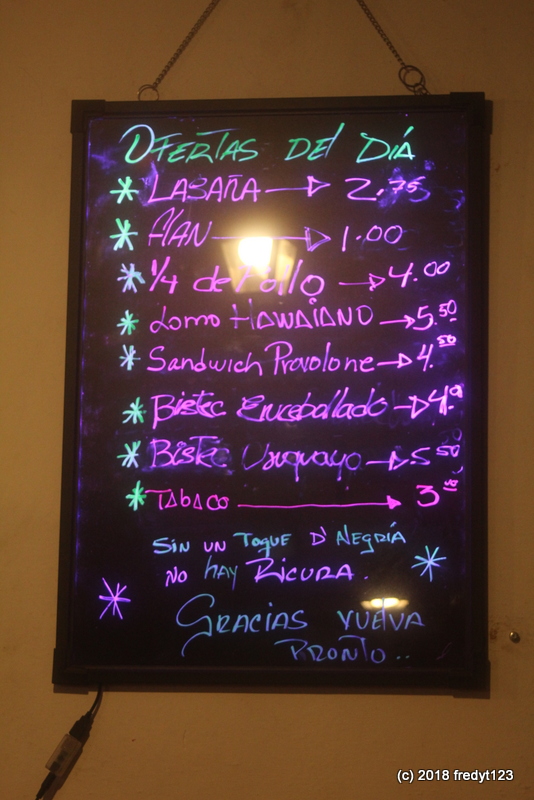 OFERTAS DEl DIÁ
* LASAÑA → 2.75
* FlAN → 1.00
* 1/4 de Pollo → 4.00
* Lomo HAWAIANO → 5.50
* Sandwich Provolone → 4.50
* Bistec Encebollado → 4.00
* BisTec Uruguayo → 5.50
* TAbACO → 3
SiN UN Toque D' AlegRÍA
NO hAY RicuRA.
GRACIAS VUElVA
PRONTO..
(c) 2018 fredyt123